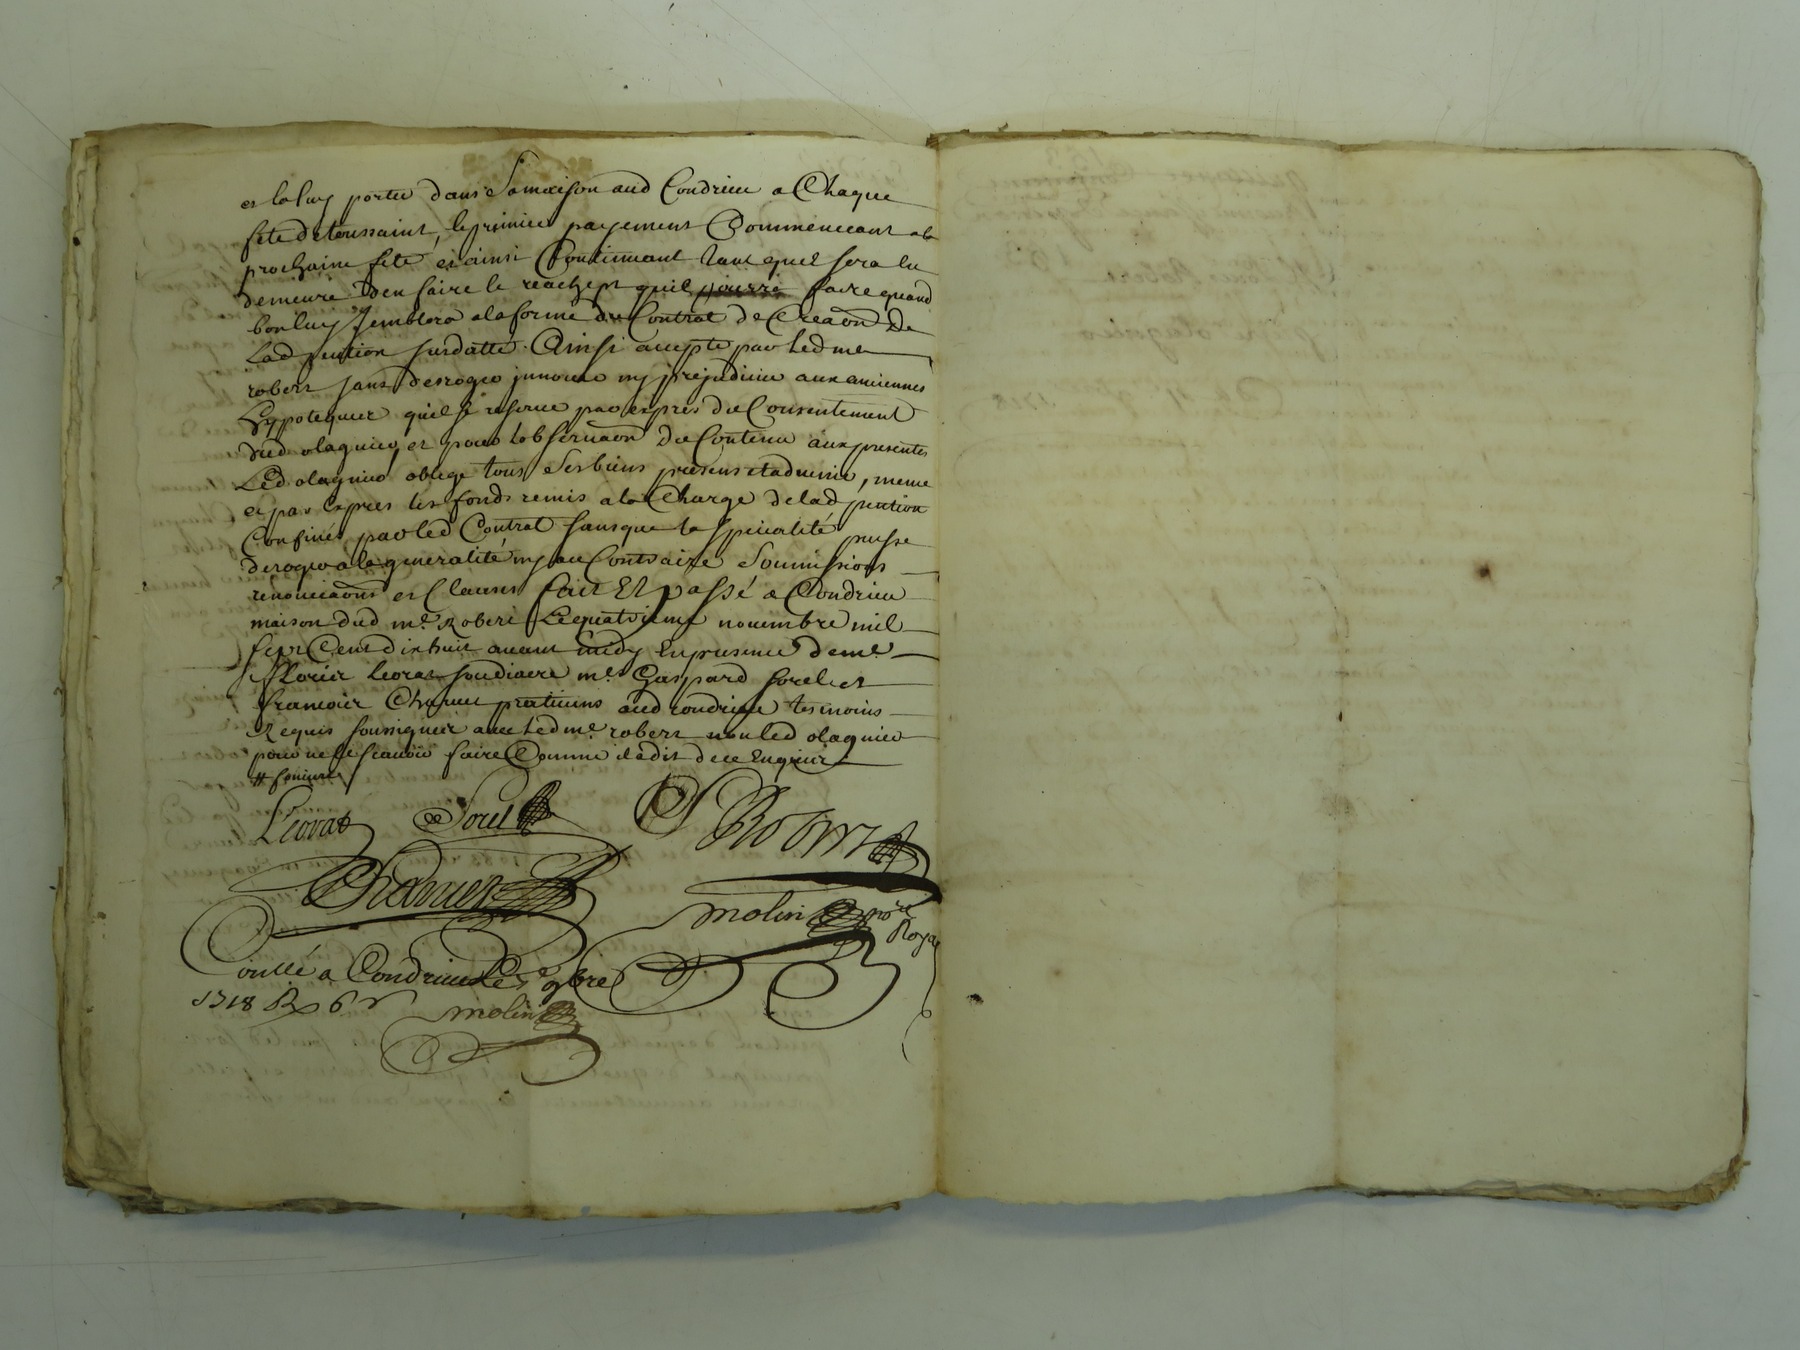 et la luy porter dans Sa maison aud Condrieu a Chaque
fete de toussaint, le premier payement Commencant a la
prochaine fete et ainsi Continuant tant quil sera en
demeure den faire le reachept quil pourra faire quand
bon luy Semblera a la forme du Contrat de Creaon De
Lad pention surdatté. Ainsi accepte par led me
robert sans deroger innover ny prejudicier aux anciennes
hypoteques quil se reserve par expres du Consentement
dud olagnier, et pour lobservaon du Contenu aux presentes
Led olagnier oblige tous Ses biens presens et advenir, meme
et par Expres les fonds remis a la Charge de lad pention
Confinés par led Contrat sans que la specialité puisse
deroger a la generalité ny au Contraire Soumissions
renonciaons et Clauses fait Et passé a Condrieu
maison dud me Robert Le quatrieme novembre mil
sept Cent dix huit avant midy En presence de me
Leorat soudiacre me Gaspard sorel et
francois Charvet praticiens aud Condrieu tesmoins
Requis soussignes avec led me robert non led olagnier
pour ne le scavoir faire Comme il a dit de ce Enquis
Leorat Sorel Robert
Charvet
molin nore
Roya
Conllé a Condrieu Le 9bre
1718 R 6 s
molin